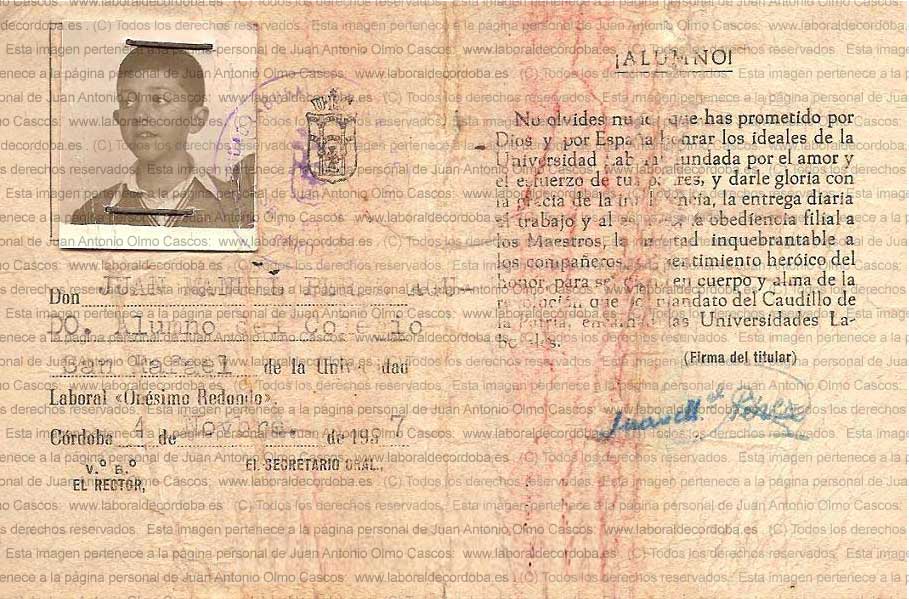 Don JUAN MANUEL
DO. Alumno del Colegio
San Rafael de la Universidad
Laboral «Onésimo Redondo».
Córdoba 4 de Novbre. de 1957
V.º B.º
EL RECTOR,
EL SECRETARIO GRAL.,
¡ALUMNO!
No olvides nunca que has prometido por
Dios y por España honrar los ideales de la
Universidad Laboral fundada por el amor y
el esfuerzo de tus padres, y darle gloria con
la gracia de la inocencia, la entrega diaria
al trabajo y al la obediencia filial a
los Maestros, la lealtad inquebrantable a
los compañeros sentimiento heróico del
honor, para ser en cuerpo y alma de la
revolución que por mandato del Caudillo de
la Patria, las Universidades La-
borales.
(Firma del titular)
Juan M. Pérez
Esta imagen pertenece a la página personal de Juan Antonio Olmo Cascos: www.laboraldecordoba.es (C) Todos los derechos reservados.